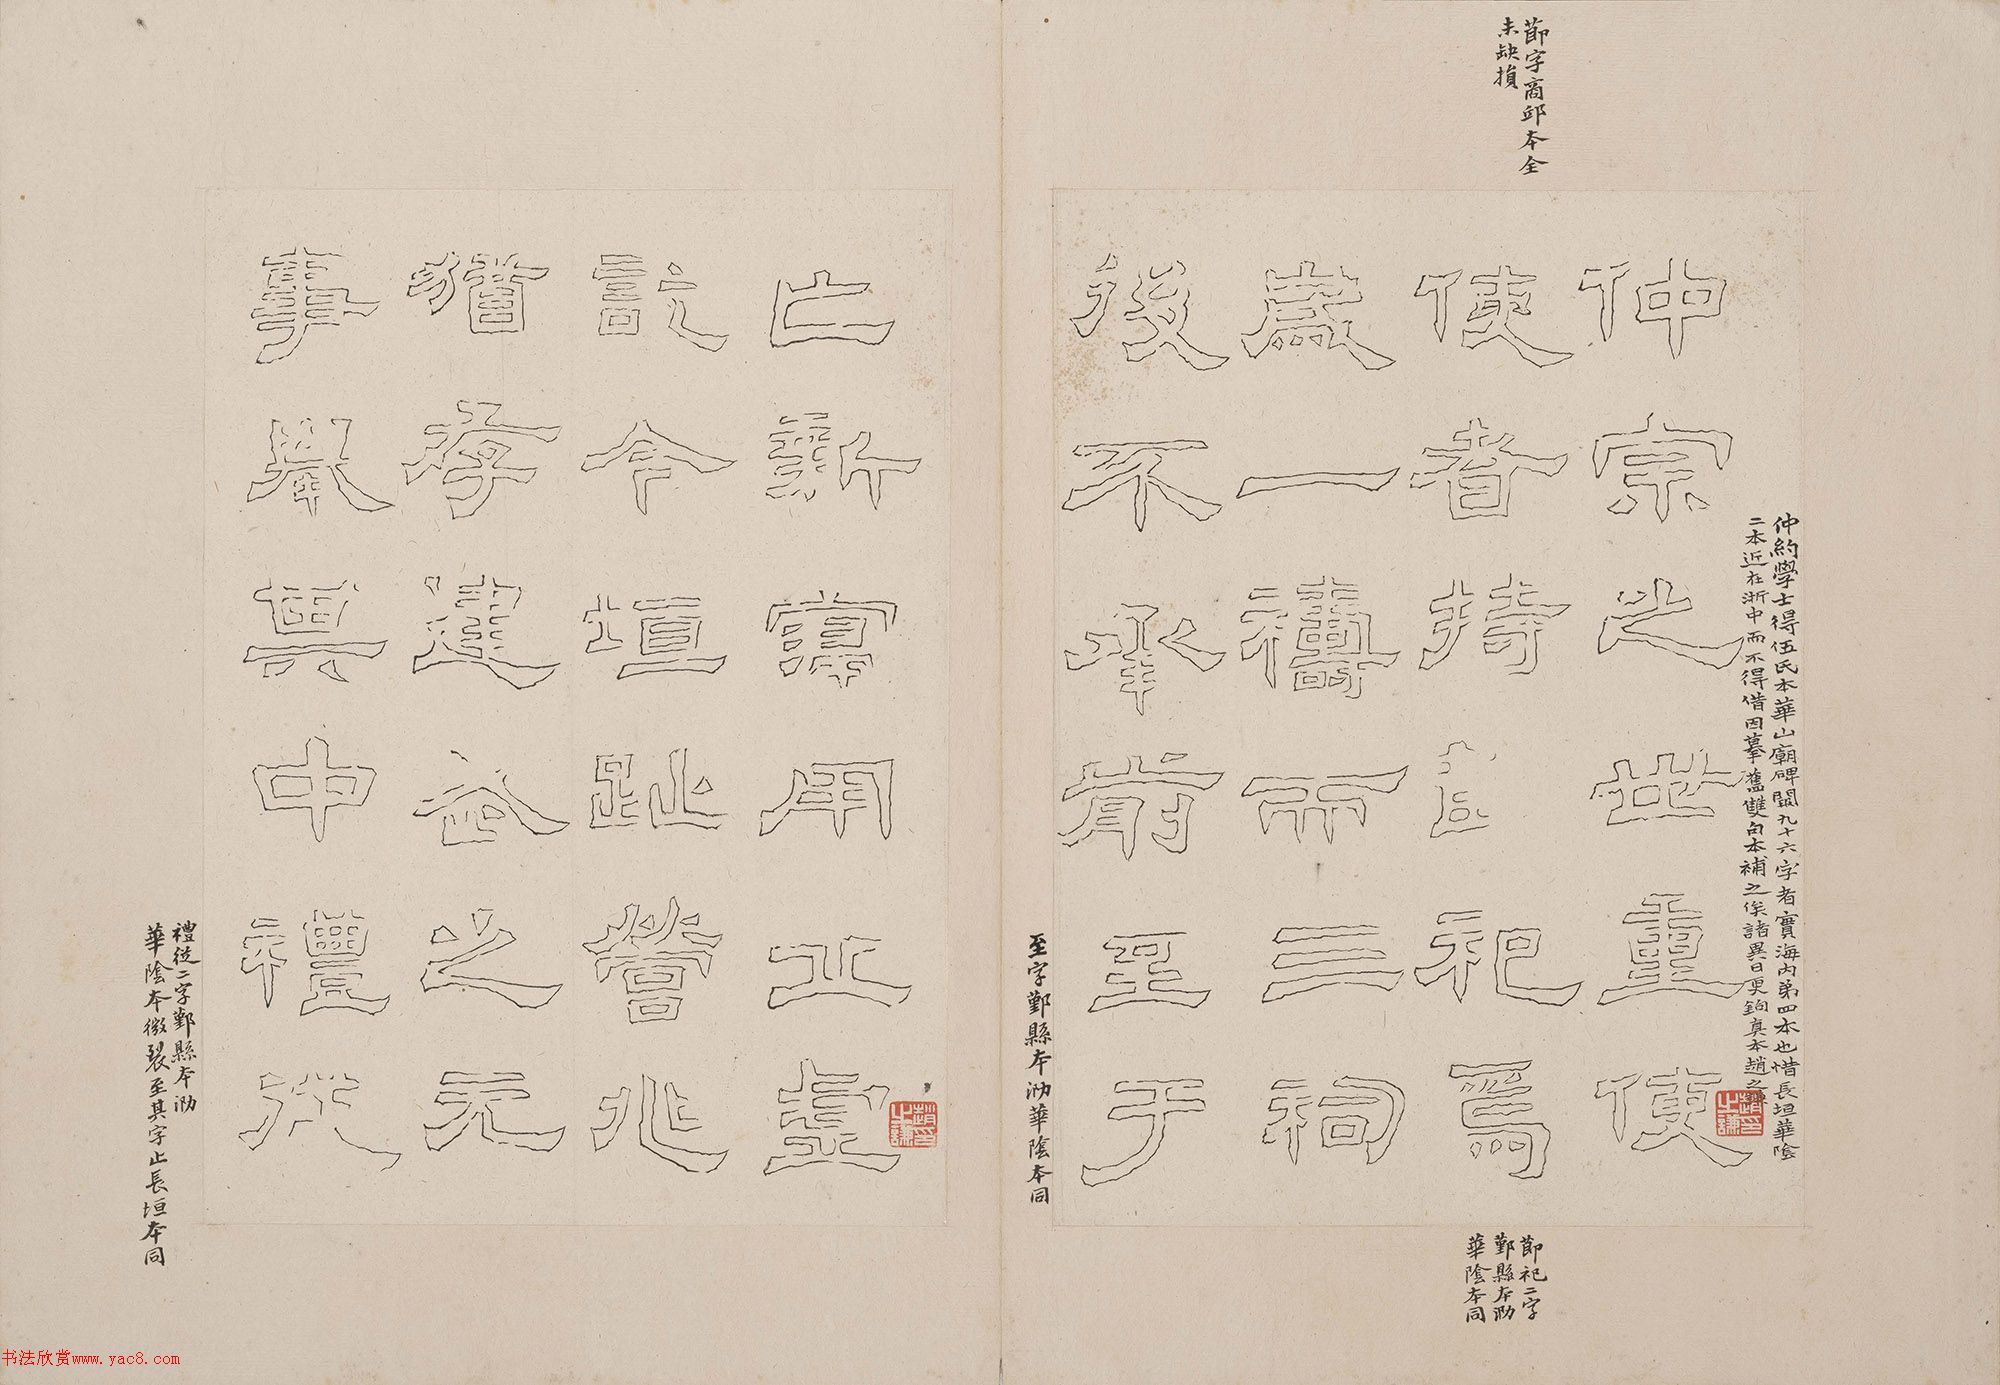 節字商邱本全
未缺損
仲宗之世重使
使者持節祀焉
歲一禱而三祠
後不承前至于
仲約學士得伍氏本華山廟碑闕九十六字者實海內弟四本也惜長垣華陰
二本近在浙中而不得借因摹舊雙勾本補之俟諸異日更鉤真本趙之謙
趙之謙印
節祀二字
鄞縣本泐
華陰本同
至字鄞縣本泐華陰本同
亡新寖用丘虛
訖今垣趾營兆
猶存建武之元
事舉其中禮從
趙之謙印
禮從二字鄞縣本泐
華陰本微裂至其字止長垣本同
书法欣赏www.yac8.com